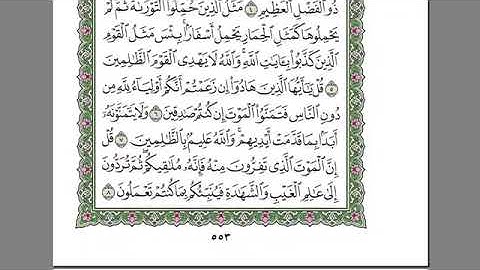 ذُو ٱلْفَضْلِ ٱلْعَظِيمِ ٤ مَثَلُ ٱلَّذِينَ حُمِّلُوا۟ ٱلتَّوْرَىٰةَ ثُمَّ لَمْ
يَحْمِلُوهَا كَمَثَلِ ٱلْحِمَارِ يَحْمِلُ أَسْفَارًۢا ۚ بِئْسَ مَثَلُ ٱلْقَوْمِ
ٱلَّذِينَ كَذَّبُوا۟ بِـَٔايَـٰتِ ٱللَّهِ ۚ وَٱللَّهُ لَا يَهْدِى ٱلْقَوْمَ ٱلظَّـٰلِمِينَ
٥ قُلْ يَـٰٓأَيُّهَا ٱلَّذِينَ هَادُوٓا۟ إِن زَعَمْتُمْ أَنَّكُمْ أَوْلِيَآءُ لِلَّهِ مِن
دُونِ ٱلنَّاسِ فَتَمَنَّوُا۟ ٱلْمَوْتَ إِن كُنتُمْ صَـٰدِقِينَ ٦ وَلَا يَتَمَنَّوْنَهُۥٓ
أَبَدًۢا بِمَا قَدَّمَتْ أَيْدِيهِمْ ۚ وَٱللَّهُ عَلِيمٌۢ بِٱلظَّـٰلِمِينَ ٧ قُلْ
إِنَّ ٱلْمَوْتَ ٱلَّذِى تَفِرُّونَ مِنْهُ فَإِنَّهُۥ مُلَـٰقِيكُمْ ۖ ثُمَّ تُرَدُّونَ
إِلَىٰ عَـٰلِمِ ٱلْغَيْبِ وَٱلشَّهَـٰدَةِ فَيُنَبِّئُكُم بِمَا كُنتُمْ تَعْمَلُونَ ٨
٥٥٣